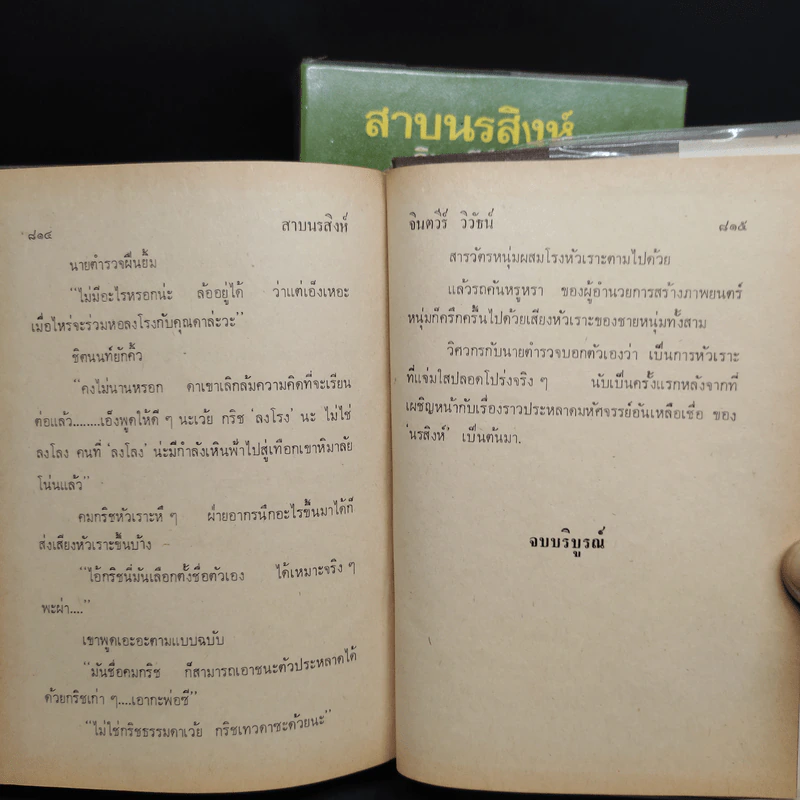 สาบนรสิงห์
๘๑๔ สาบนรสิงห์
นายตำรวจฝืนยิ้ม
“ไม่มีอะไรหรอกน่ะ ล้ออยู่ได้ ว่าแต่เอ็งเหอะ
เมื่อไหร่จะร่วมหอลงโรงกับคุณดาล่ะวะ”
ชิตนนท์ยักคิ้ว
“คงไม่นานหรอก ดาเขาเลิกล้มความคิดที่จะเรียน
ต่อแล้ว........เอ็งพูดให้ดี ๆ นะเว้ย กริช ‘ลงโรง’ นะ ไม่ใช่
ลงโลง คนที่ ‘ลงโลง’ น่ะมีกำลังเหินฟ้าไปสู่เทือกเขาหิมาลัย
โน่นแล้ว”
คมกริชหัวเราะหึ ๆ ฝ่ายอากรนึกอะไรขึ้นมาได้ก็
ส่งเสียงหัวเราะขึ้นบ้าง
“ไอ้กริชนี่มันเลือกตั้งชื่อตัวเอง ได้เหมาะจริง ๆ
พะผ่า....”
เขาพูดเอะอะตามแบบฉบับ
“มันชื่อคมกริช ก็สามารถเอาชนะตัวประหลาดได้
ด้วยกริชเก่า ๆ....เอากะพ่อซี”
“ไม่ใช่กริชธรรมดาเว้ย กริชเทวดาซะด้วยนะ”
จินตวีร์ วิวัธน์ ๘๑๕
สารวัตรหนุ่มผสมโรงหัวเราะตามไปด้วย
แล้วรถคันหรูหรา ของผู้อำนวยการสร้างภาพยนตร์
หนุ่มก็ครึกครื้นไปด้วยเสียงหัวเราะของชายหนุ่มทั้งสาม
วิศวกรกับนายตำรวจบอกตัวเองว่า เป็นการหัวเราะ
ที่แจ่มใสปลอดโปร่งจริง ๆ นับเป็นครั้งแรกหลังจากที่
เผชิญหน้ากับเรื่องราวประหลาดมหัศจรรย์อันเหลือเชื่อ ของ
‘นรสิงห์’ เป็นต้นมา.
จบบริบูรณ์